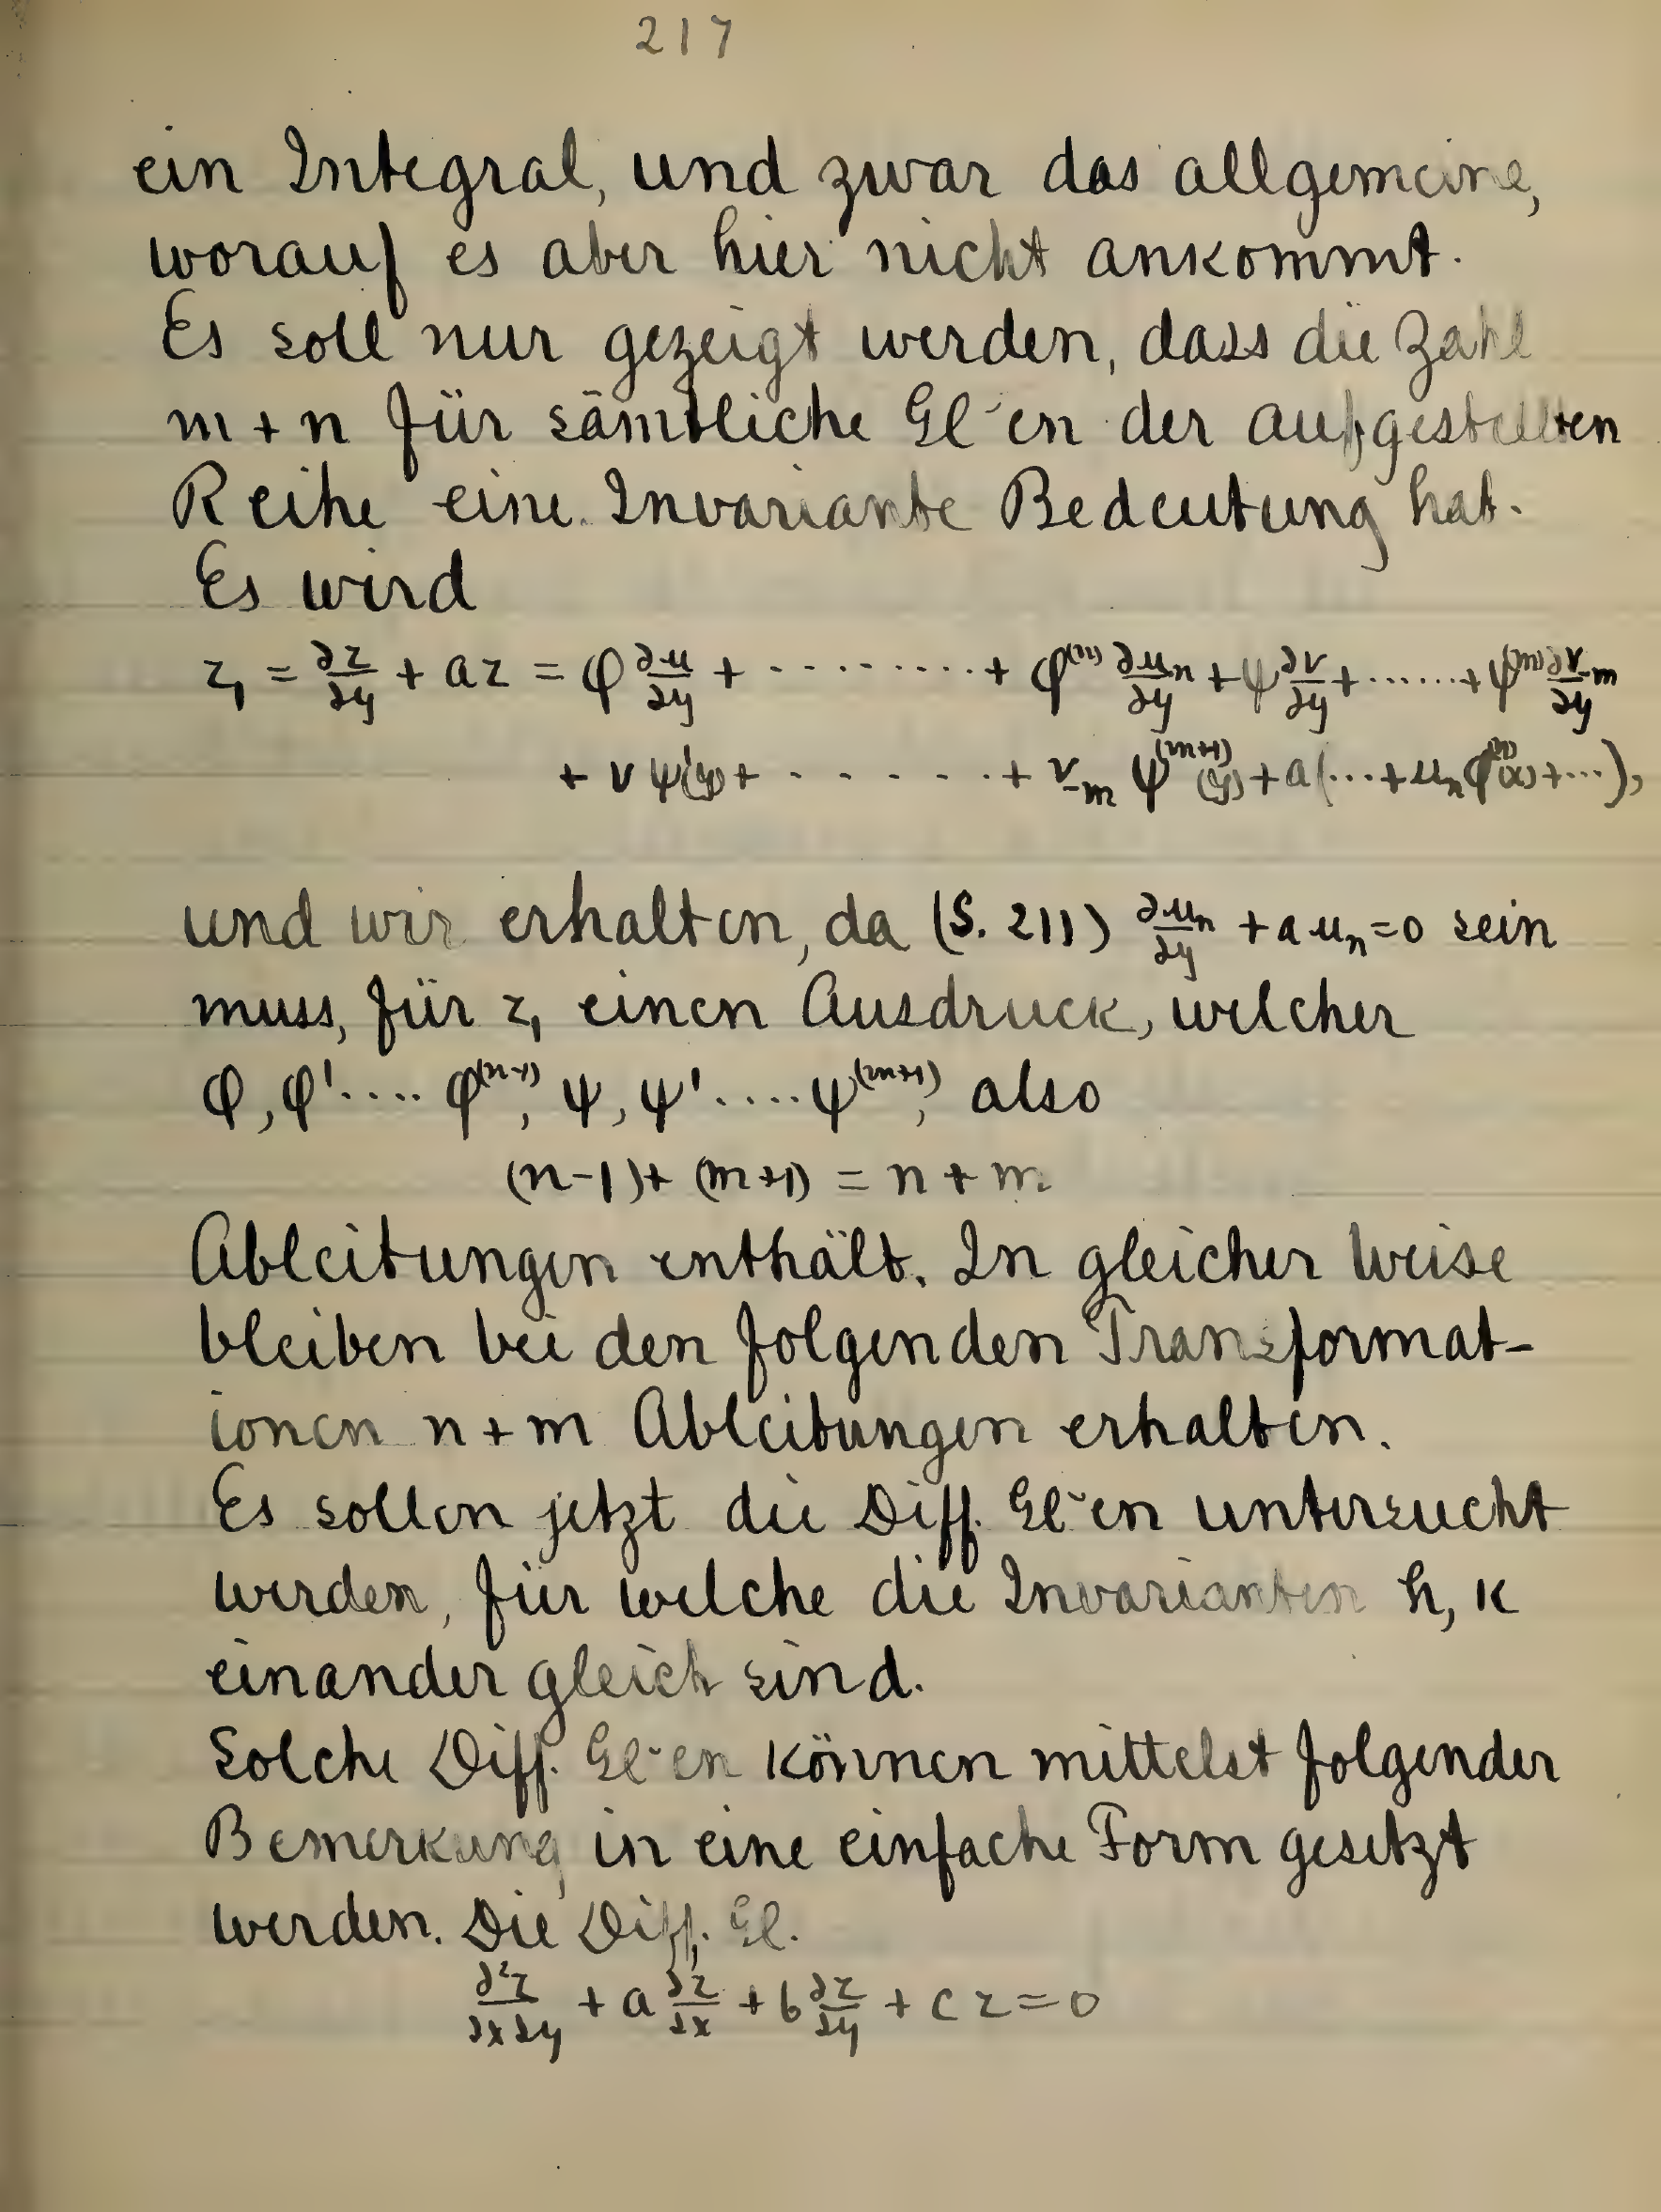 217
ein Integral, und zwar das allgemeine,
worauf es aber hier nicht ankommt.
Es soll nur gezeigt werden, dass die Zahl
m + n für sämtliche Gl~en der aufgestellten
Reihe eine Invariante Bedeutung hat.
Es wird
z₁ = ∂z/∂y + az = φ ∂u/∂y + ......... + φ⁽ⁿ⁾ ∂uₙ/∂y + ψ ∂v/∂y + ...... + ψ⁽ᵐ⁾ ∂v₋ₘ/∂y
+ v ψ'(y) + ...... + v₋ₘ ψ⁽ᵐ⁺¹⁾(y) + a(... + uₙ φ⁽ⁿ⁾(x) + ...),
und wir erhalten, da (S. 211) ∂uₙ/∂y + a uₙ = 0 sein
muss, für z₁ einen Ausdruck, welcher
φ, φ' .... φ⁽ⁿ⁻¹⁾, ψ, ψ' .... ψ⁽ᵐ⁺¹⁾, also
(n-1) + (m+1) = n + m
Ableitungen enthält. In gleicher Weise
bleiben bei den folgenden Transformat-
ionen n + m Ableitungen erhalten.
Es sollen jetzt die Diff. Gl~en untersucht
werden, für welche die Invarianten h, k
einander gleich sind.
Solche Diff. Gl~en können mittelst folgender
Bemerkung in eine einfache Form gesetzt
werden. Die Diff. Gl.
∂²z/∂x∂y + a ∂z/∂x + b ∂z/∂y + cz = 0